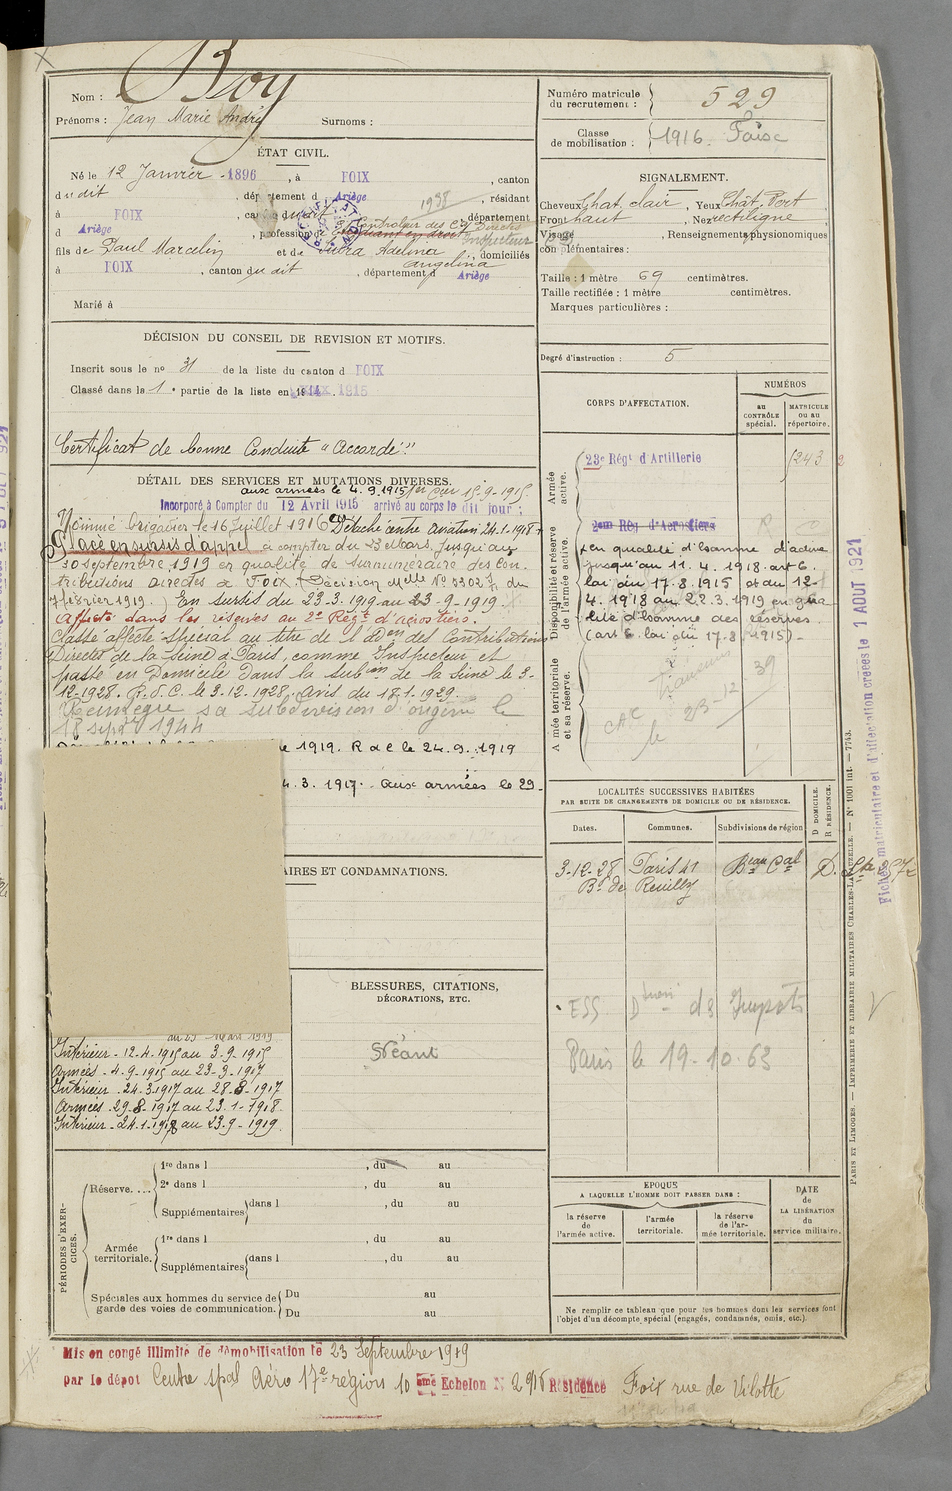 Nom : Boy
Prénoms : Jean Marie André Surnoms :
ÉTAT CIVIL.
Né le 12 Janvier 1896, à FOIX, canton
du dit, département d Ariège, résidant
1938
à FOIX, canton du dit, département
d Ariège, profession de Controleur des Ctions Directes
Etudiant en droit Inspecteur
fils de Paul Marcelin et de Adelina, domiciliés
Angelina
à FOIX, canton du dit, département d Ariège
Marié à
DÉCISION DU CONSEIL DE REVISION ET MOTIFS.
Inscrit sous le no 31 de la liste du canton d FOIX
Classé dans la 1e partie de la liste en 1914. 1915
Certificat de bonne Conduite "Accordé"
DÉTAIL DES SERVICES ET MUTATIONS DIVERSES.
aux armées le 4.9.1915
Incorporé à Compter du 12 Avril 1915 arrivé au corps le dit jour :
Nommé Brigadier le 16 Juillet 1916 Détaché entre aviation 24-1-1918
Placé en sursis d'appel à compter du 23 Mars jusqu'au
30 septembre 1919 en qualité de surnuméraire des con-
tributions directes à Foix. Décision Melle No du
février 1919.) En sursis du 23-3-1919 au 23-9-1919.
Affecté dans les réserves au 2e Régt d'aérostiers.
Classé affecté spécial au titre de l'Aden des Contributions
Directes de la Seine à Paris, comme Inspecteur et
passé en Domicile dans la subon de la Seine le 3-
12-1928. R.d.C. le 3-12-1928, avis du 18-1-1929.
Réintègre sa subdivision d'origine le
18 sept 1944
1919. R d C le 24.9.1919
4.3.1917. Aux armées le 29-
AIRES ET CONDAMNATIONS.
BLESSURES, CITATIONS,
DÉCORATIONS, ETC.
Néant
Intérieur - 12-4-1915 au 3-9-1915
Armées - 4-9-1915 au 23-3-1917
Intérieur - 24-3-1917 au 28-8-1917
Armées - 29-8-1917 au 23-1-1918.
Intérieur - 24-1-1918 au 23-9-1919.
PÉRIODES D'EXERCICES.
Réserve....
1re dans l , du au
2e dans l , du au
Supplémentaires dans l , du au
Armée territoriale.
1re dans l , du au
Supplémentaires dans l , du au
Spéciales aux hommes du service de
garde des voies de communication.
Du au
Du au
Mis en congé illimité de démobilisation le 23 Septembre 1919
par le dépot Centre spal Aéro 17e région 10 ème Echelon N 2916 Résidence Foix rue de Vilotte
Numéro matricule
du recrutement : 529
Classe
de mobilisation : 1916. Foix
SIGNALEMENT.
Cheveux Chat. clair, Yeux Chât.
Front haut, Nez rectiligne
Visage , Renseignements physionomiques
complémentaires :
Taille : 1 mètre 69 centimètres.
Taille rectifiée : 1 mètre centimètres.
Marques particulières :
Degré d'instruction : 5
CORPS D'AFFECTATION.
NUMÉROS
AU
CONTRÔLE
spécial.
MATRICULE
ou au
répertoire.
Armée
active.
23e Régt d'Artillerie 243
Disponibilité et réserve
de l'armée active.
2eme Rég. d'Aérostiers
en qualité d'homme d'active
jusqu'au 11.4.1918. art 6.
loi du 17.8.1915 et du 12-
4.1918 au 22.3.1919 en qua
lité d'homme des réserves.
(art 6. loi du 17.8.1915)-
Armée territoriale
et sa réserve.
le 23-12-39
LOCALITÉS SUCCESSIVES HABITÉES
PAR SUITE DE CHANGEMENTS DE DOMICILE OU DE RÉSIDENCE.
D DOMICILE.
R RÉSIDENCE.
Dates. Communes. Subdivisions de région
3-12-28 Paris 41 Beau Cal D.
Bd de Reuilly
ESS Dtion ds Impots
Paris le 19-10-63
EPOQUE
A LAQUELLE L'HOMME DOIT PASSER DANS :
la réserve
de
l'armée active.
l'armée
territoriale.
la réserve
de l'ar-
mée territoriale.
DATE
de
LA LIBÉRATION
du
service militaire.
Ne remplir ce tableau que pour les hommes dont les services font
l'objet d'un décompte spécial (engagés, condamnés, omis, etc.).
PARIS ET LIMOGES. — IMPRIMERIE ET LIBRAIRIE MILITAIRES CHARLES-LAVAUZELLE. — No 1001 int. — 7743.
Fiches matriculaire et d'affectation créées le 1 AOUT 1921